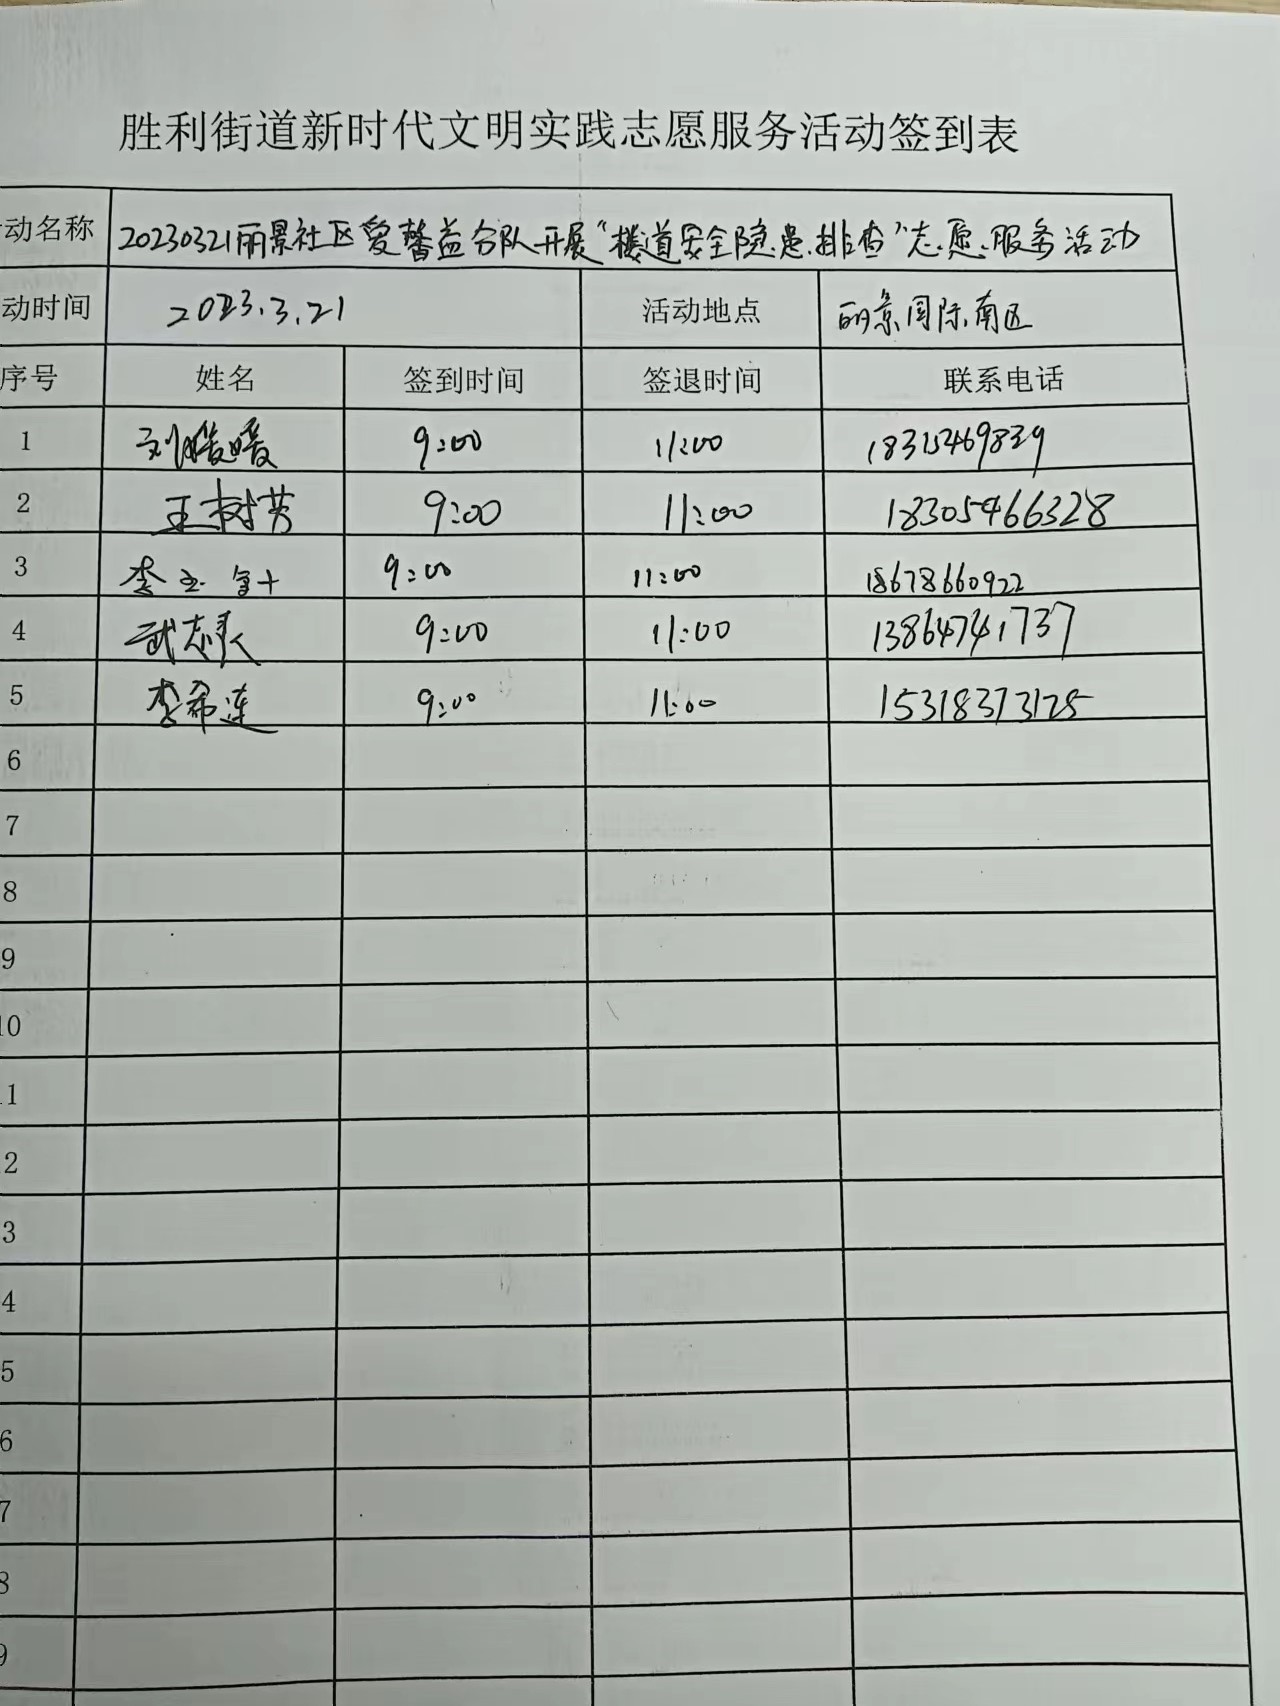 胜利街道新时代文明实践志愿服务活动签到表
动名称 20230321丽景社区爱馨益分队开展“楼道安全隐患排查”志愿服务活动
动时间 2023.3.21 活动地点 丽景国际南区
序号 姓名 签到时间 签退时间 联系电话
1 刘媛媛 9:00 11:00 18315469839
2 王树芳 9:00 11:00 18305466328
3 李玉 9:00 11:00 18678660922
4 武志 9:00 11:00 13864741737
5 李希连 9:00 11:00 15318373125
6
7
8
9
10
1
2
3
4
5
6
7
8
9